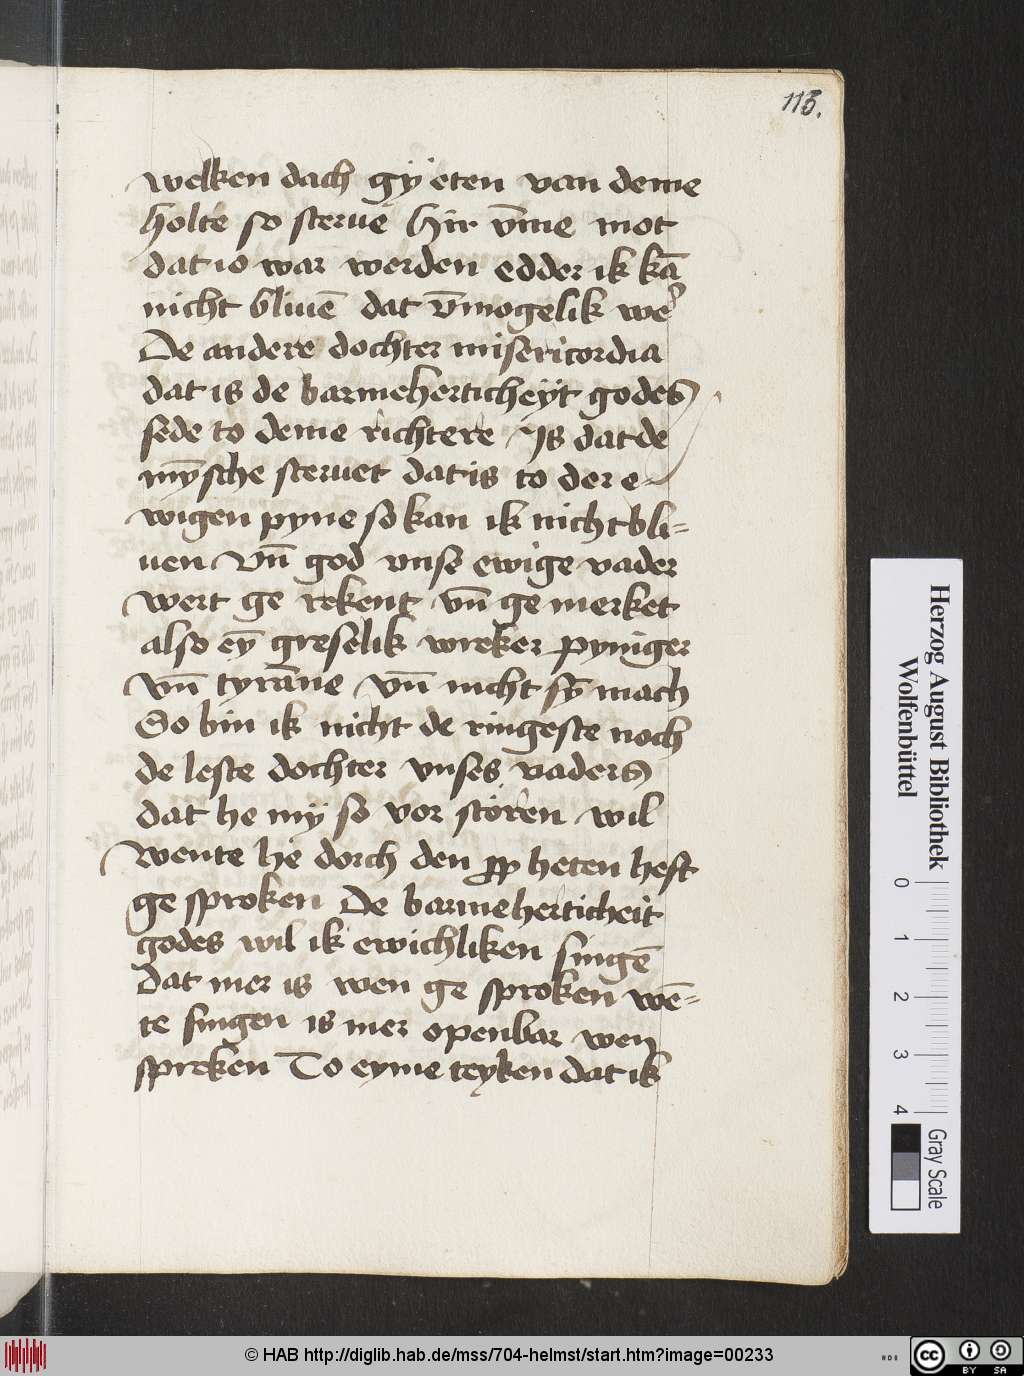 113.
welken dach gÿ eten van deme
holte so sterue Hir v̄me mot
dat io war werden edder ik kā
nicht bliuē dat v̄mogelik we᷑
De andere dochter misericordia
dat is de barmeherticheÿt godes
sede to deme richtere Is dat de
mȳsche steruet dat is to der e-
wigen pyne so kan ik nicht bli=
uen Vn̄ god vnse ewige vader
wert ge rekent vn̄ ge merket
also eȳ greselik wreker pyniger
vn̄ tyrāne vn̄ nicht sȳ mach
So bin ik nicht de ringeste noch
de leste dochter vnses vaders
dat he mÿ so vor stören wil
Wente he dorch den heten heft
ge sproken De barmeherticheit
godes wil ik ewichliken singē
dat mer is wen ge sproken wē=
te singen is mer openbar wen
spreken To eyme teyken dat ik
Herzog August Bibliothek
Wolfenbüttel
0 1 2 3 4
Gray Scale
© HAB http://diglib.hab.de/mss/704-helmst/start.htm?image=00233
cc BY SA